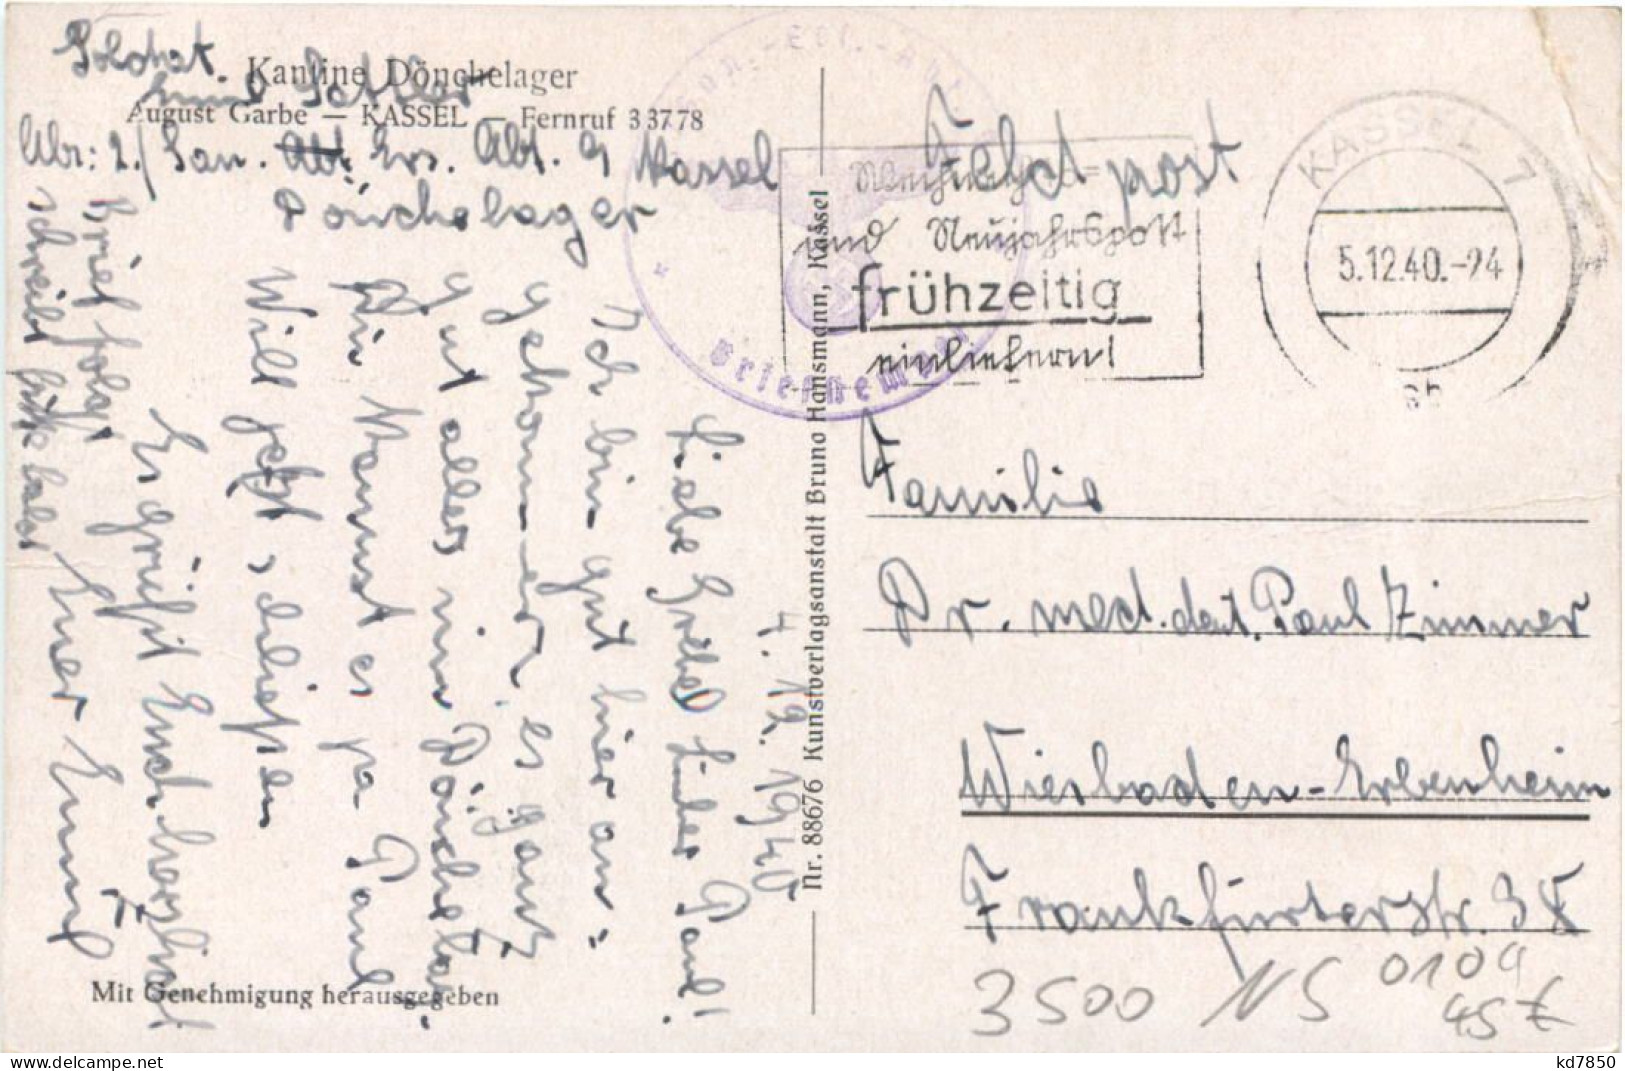 Soldat
Kantine Dönchelager
August Garbe — KASSEL — Fernruf 33778
Emil Sattler
Abs: 2./San. Ers. Abt. 9 Kassel
Dönchelager
4. 12. 1940
Liebe Gretel Lieber Paul!
Ich bin gut hier an-
gekommen, es ganz
gut alles im Dönchelager.
Du kennst es ja Paul
Will jetzt schließen
Es grüßt Euch herzlichst
Euer Emil
Brief folgt
schreibt bitte bald
Mit Genehmigung herausgegeben
Nr. 88676 Kunstverlagsanstalt Bruno Hansmann, Kassel
Feldpost
Weihnachts-
und Neujahrspost
frühzeitig
einliefern!
KASSEL 7
5.12.40.-24
Briefstempel
Familie
Dr. med. dent. Paul Zimmer
Wiesbaden-Erbenheim
Frankfurterstr. 38
3500 NS 0109
45 €
kd7850